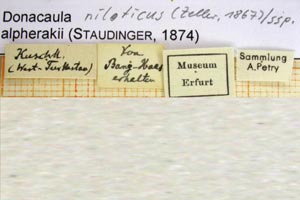 Donacaula niloticus (Zeller, 1867)/ssp.
alpherakii (STAUDINGER, 1874)
Kuschk.
(West-Turkestan)
Von
Bang-Haas
erhalten
Museum
Erfurt
Sammlung
A. Petry